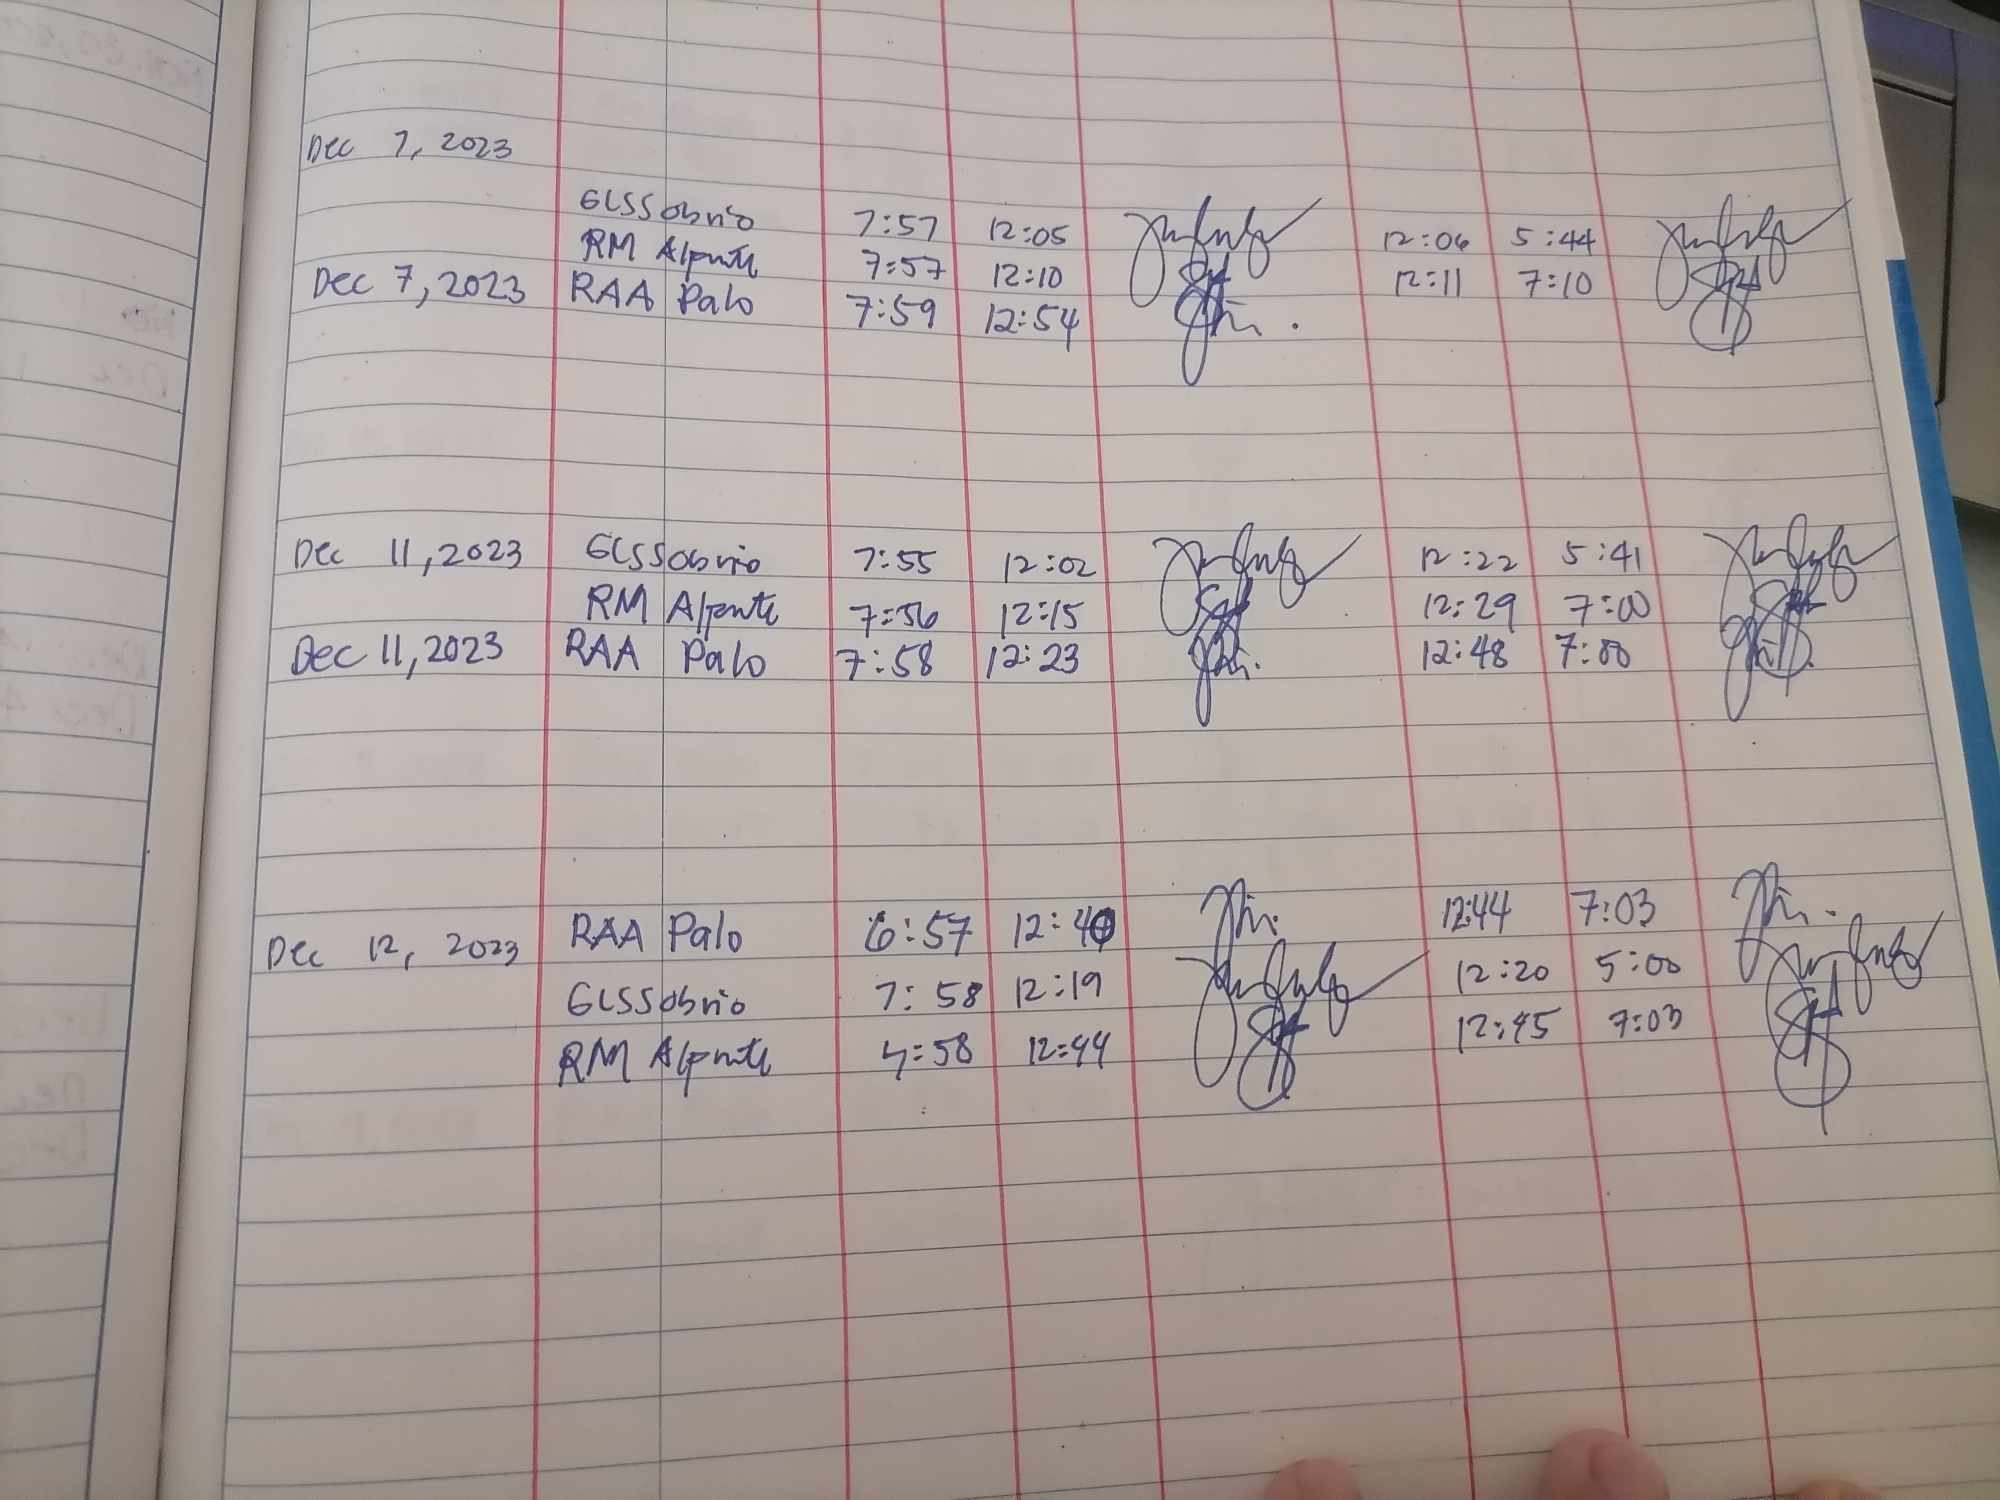 Dec 7, 2023
GLSSobrio 7:57 12:05 12:06 5:44
RM Alponte 7:57 12:10 12:11 7:10
Dec 7, 2023 RAA Palo 7:59 12:54
Dec 11, 2023 GLSSobrio 7:55 12:02 12:22 5:41
RM Alponte 7:56 12:15 12:29 7:00
Dec 11, 2023 RAA Palo 7:58 12:23 12:48 7:00
RAA Palo 6:57 12:40 12:44 7:03
Dec 12, 2023
GLSSobrio 7:58 12:19 12:20 5:00
RM Alponte 7:58 12:44 12:45 7:03